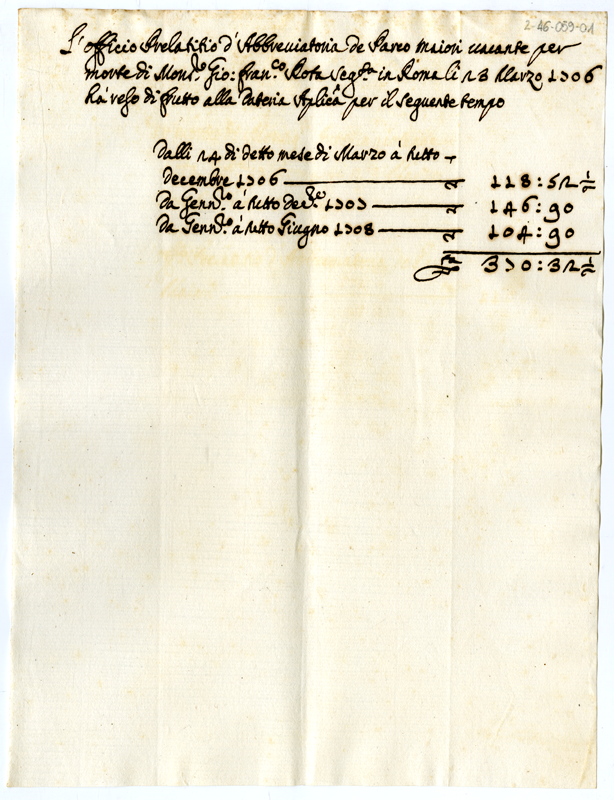 2-46-059-01
L'officio Prelatitio d'Abbreviatoria de Parco maiori vacante per
morte di Mons.ʳᵉ Gio: Fran.ᶜᵒ Rota seg.ᵗᵃ in Roma li 23 Marzo 1706
hà reso di frutto alla Dateria Aplicã per il seguente tempo
Dalli 24 di detto mese di Marzo à tutto
Decembre 1706 118:52½
Da Genn.ʳᵒ à tutto Dec.ʳᵉ 1707 146:90
Da Genn.ʳᵒ à tutto Giugno 1708 104:90
370:32½